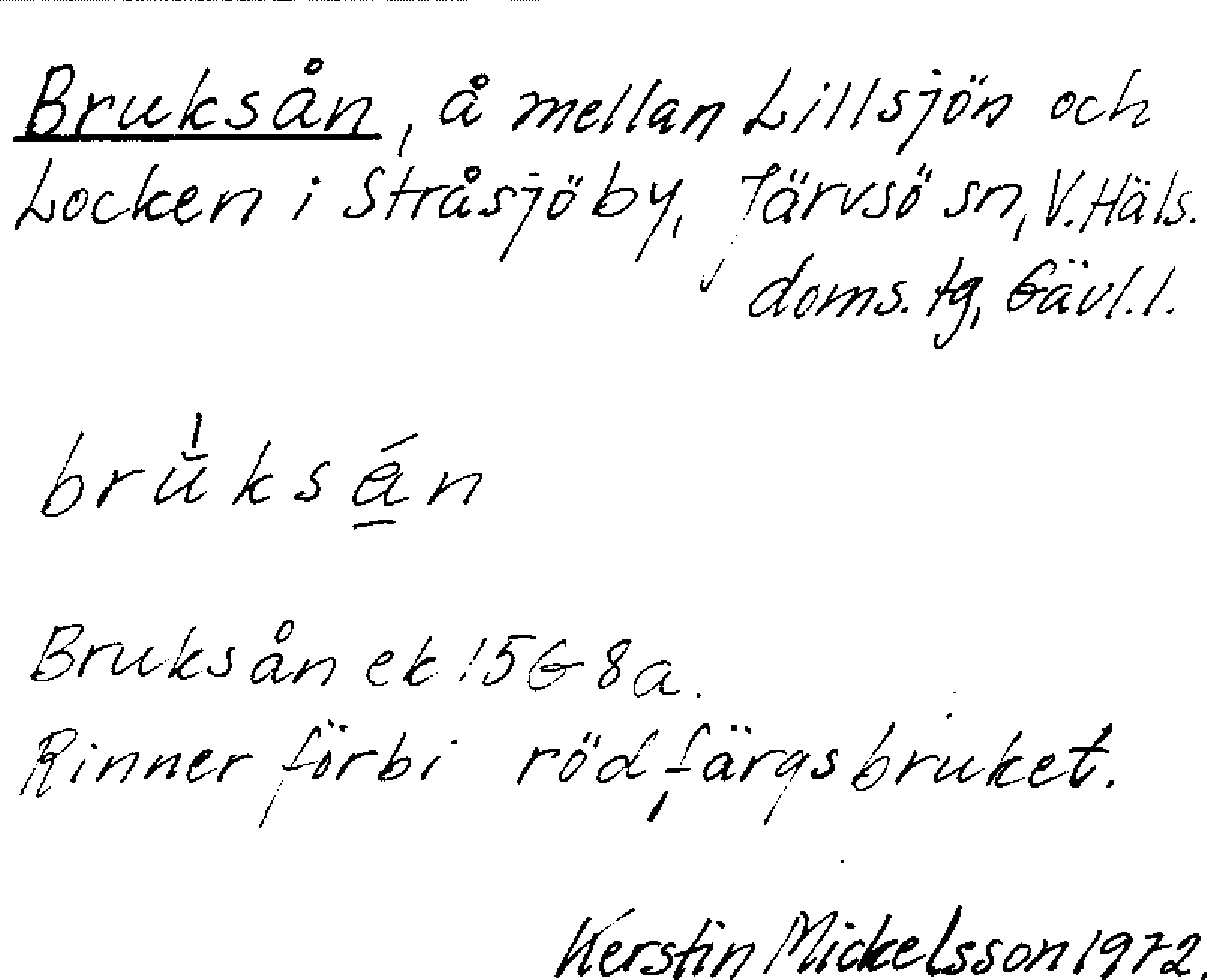 Bruksån, å mellan Lillsjön och
Locken i Stråsjö by, Järvsö sn, V. Häls.
doms. tg, Gävl. l.
brŭ̍ksá̱n
Bruksån ek 15G 8a.
Rinner förbi rödfärgsbruket.
Kerstin Mickelsson 1972.